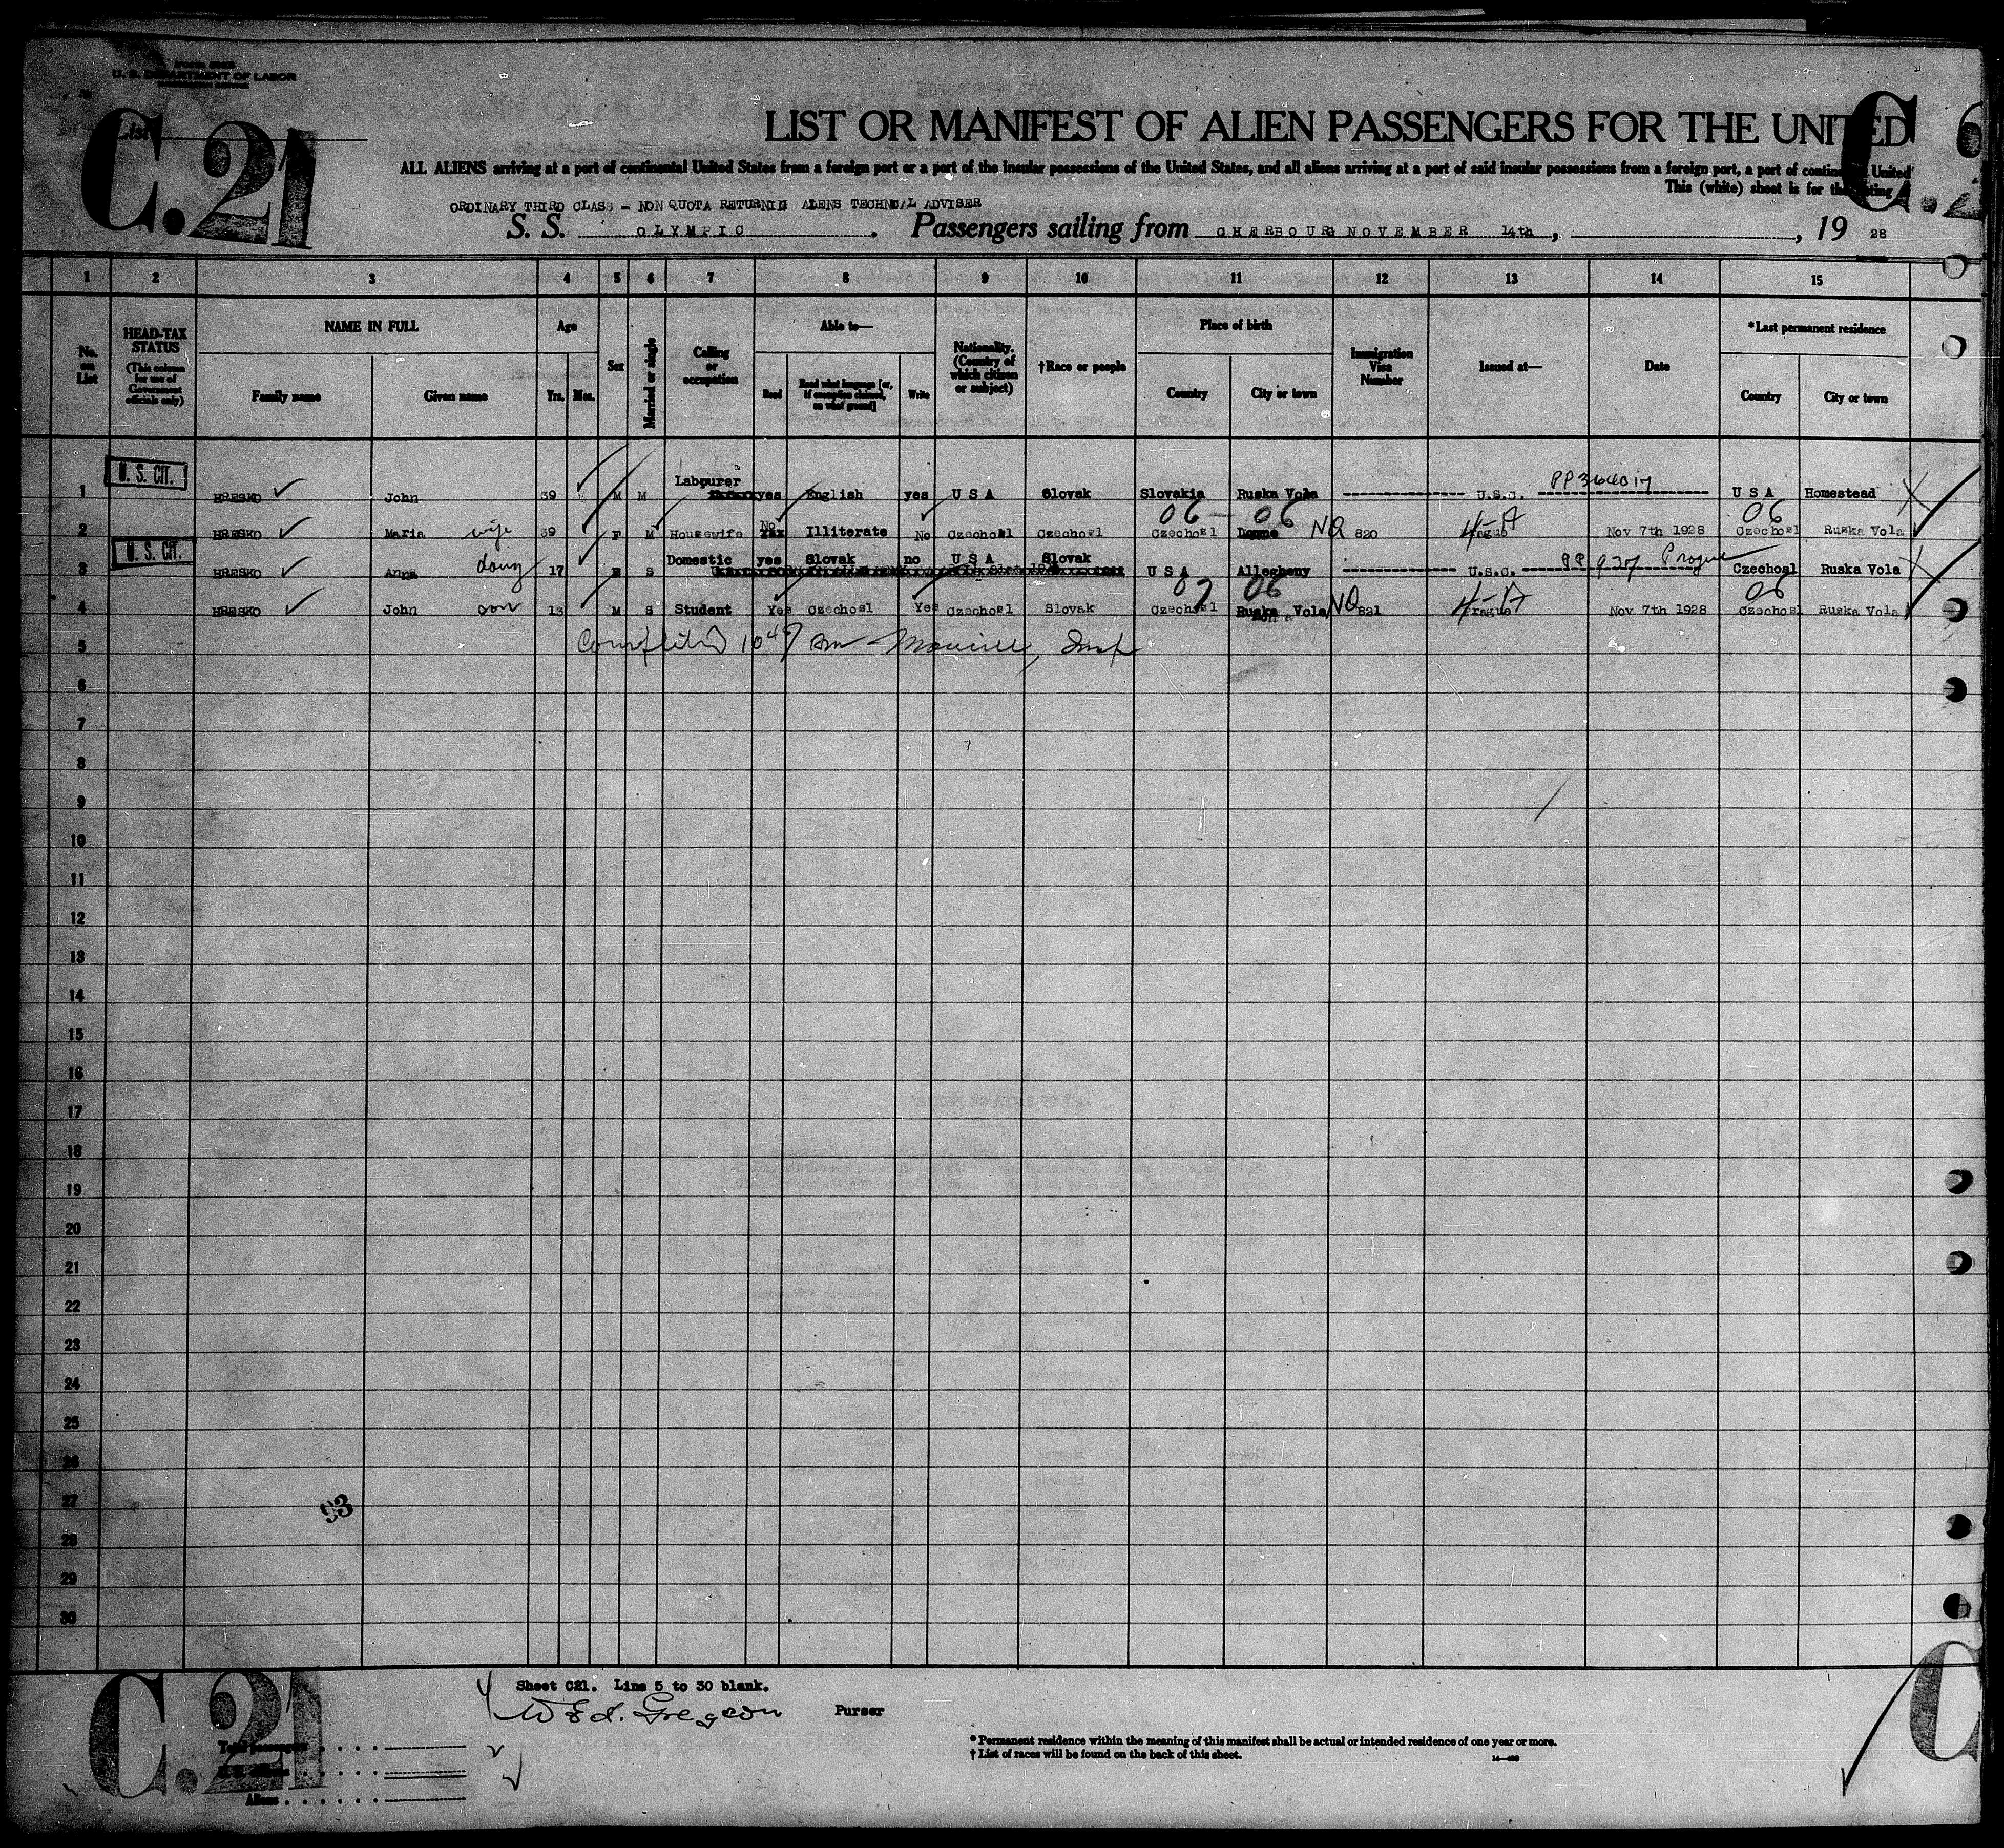 U. S. DEPARTMENT OF LABOR
List
C.21
LIST OR MANIFEST OF ALIEN PASSENGERS FOR THE UNITED
C. 
ALL ALIENS arriving at a port of continental United States from a foreign port or a port of the insular possessions of the United States, and all aliens arriving at a port of said insular possessions from a foreign port, a port of United
This (white) sheet is for the
ORDINARY THIRD CLASS - NON QUOTA RETURNING ALENS TECHNICAL ADVISER
S. S. OLYMPIC. Passengers sailing from CHERBOURG NOVEMBER 14th, , 19 28
1 2 3 4 5 6 7 8 9 10 11 12 13 14 15
No. on List
HEAD-TAX STATUS (This column for use of Government officials only)
NAME IN FULL Family name Given name
Age Yrs. Mos.
Sex
Married or single
Calling or occupation
Able to— Read Read what language [or, if exemption claimed, on what ground] Write
Nationality. (Country of which citizen or subject)
†Race or people
Place of birth Country City or town
Immigration Visa Number
Issued at—
Date
*Last permanent residence Country City or town
U. S. CIT.
1 HRESKO John 39 M M Labourer yes English yes U S A Slovak Slovakia Ruska Vola U.S.C. PP364017 U S A Homestead
06 - 06 06
2 HRESKO Maria wife 39 F M Housewife No Illiterate No Czechosl Czechosl Czechosl NQ 820 Nov 7th 1928 Czechosl Ruska Vola
U. S. CIT.
3 HRESKO Anna daug 17 F S Domestic yes Slovak no U S A Slovak U S A Allegheny U.S.C. PP 937 Prague Czechosl Ruska Vola
07 06 06
4 HRESKO John son 15 M S Student Yes Czechosl Yes Czechosl Slovak Czechosl Ruska Vola NQ 821 Nov 7th 1928 Czechosl Ruska Vola
5
6
7
8
9
10
11
12
13
14
15
16
17
18
19
20
21
22
23
24
25
26
27
93
28
29
30
C.21
Sheet C21. Line 5 to 30 blank.
Purser
Total passengers
Aliens
* Permanent residence within the meaning of this manifest shall be actual or intended residence of one year or more.
† List of races will be found on the back of this sheet.
C